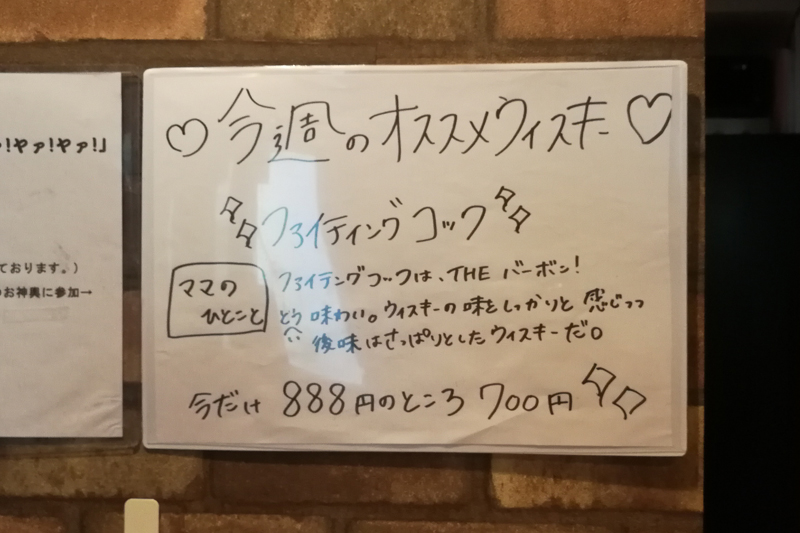 ァ!ヤァ!ヤァ!」
ております。)
お神輿に参加→
♡今週のオススメウィスキー♡
ファイティングコック
ママの
ひとこと
ファイテングコックは、THE バーボン!
という味わい。ウィスキーの味をしっかりと感じつつ
後味はさっぱりとしたウィスキーだ。
今だけ 888円のところ 700円